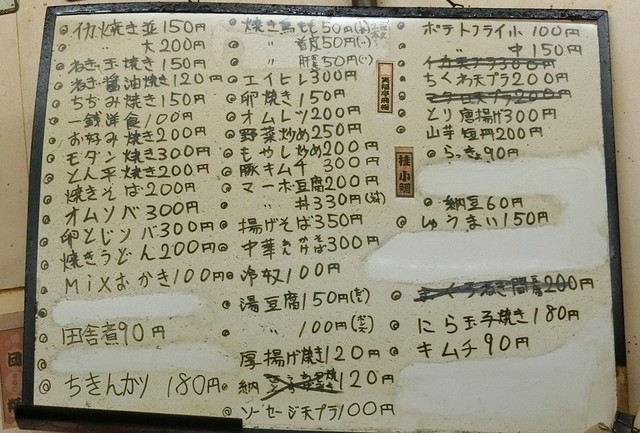 イカ焼き並150円
〃 大200円
ねぎ玉焼き150円
ねぎ醤油焼き120円
ちぢみ焼き150円
一銭洋食100円
お好み焼き200円
モダン焼き300円
とん平焼き200円
焼きそば200円
オムソバ300円
卵とじソバ300円
焼きうどん200円
MIXおかき100円
田舎煮90円
ちきんカツ 180円
焼き鳥もも50円
〃 首皮50円
〃 肝50円
エイヒレ300円
卵焼き150円
オムレツ200円
野菜炒め250円
もやし炒め200円
豚キムチ 300円
マーボ豆腐200円
〃 丼330円
揚げそば350円
中華あんかけそば300円
冷奴100円
湯豆腐150円
〃 100円
厚揚げ焼き120円
納 120円
ソーセージ天プラ100円
笑福亭
桂 小鯛
ポテトフライ小100円
〃 中150円
イカ天プラ300円
ちくわ天プラ200円
マグロ天プラ200円
とり唐揚げ300円
山芋短冊200円
らっきょ90円
納豆60円
しゅうまい150円
200円
にら玉子焼き180円
キムチ90円